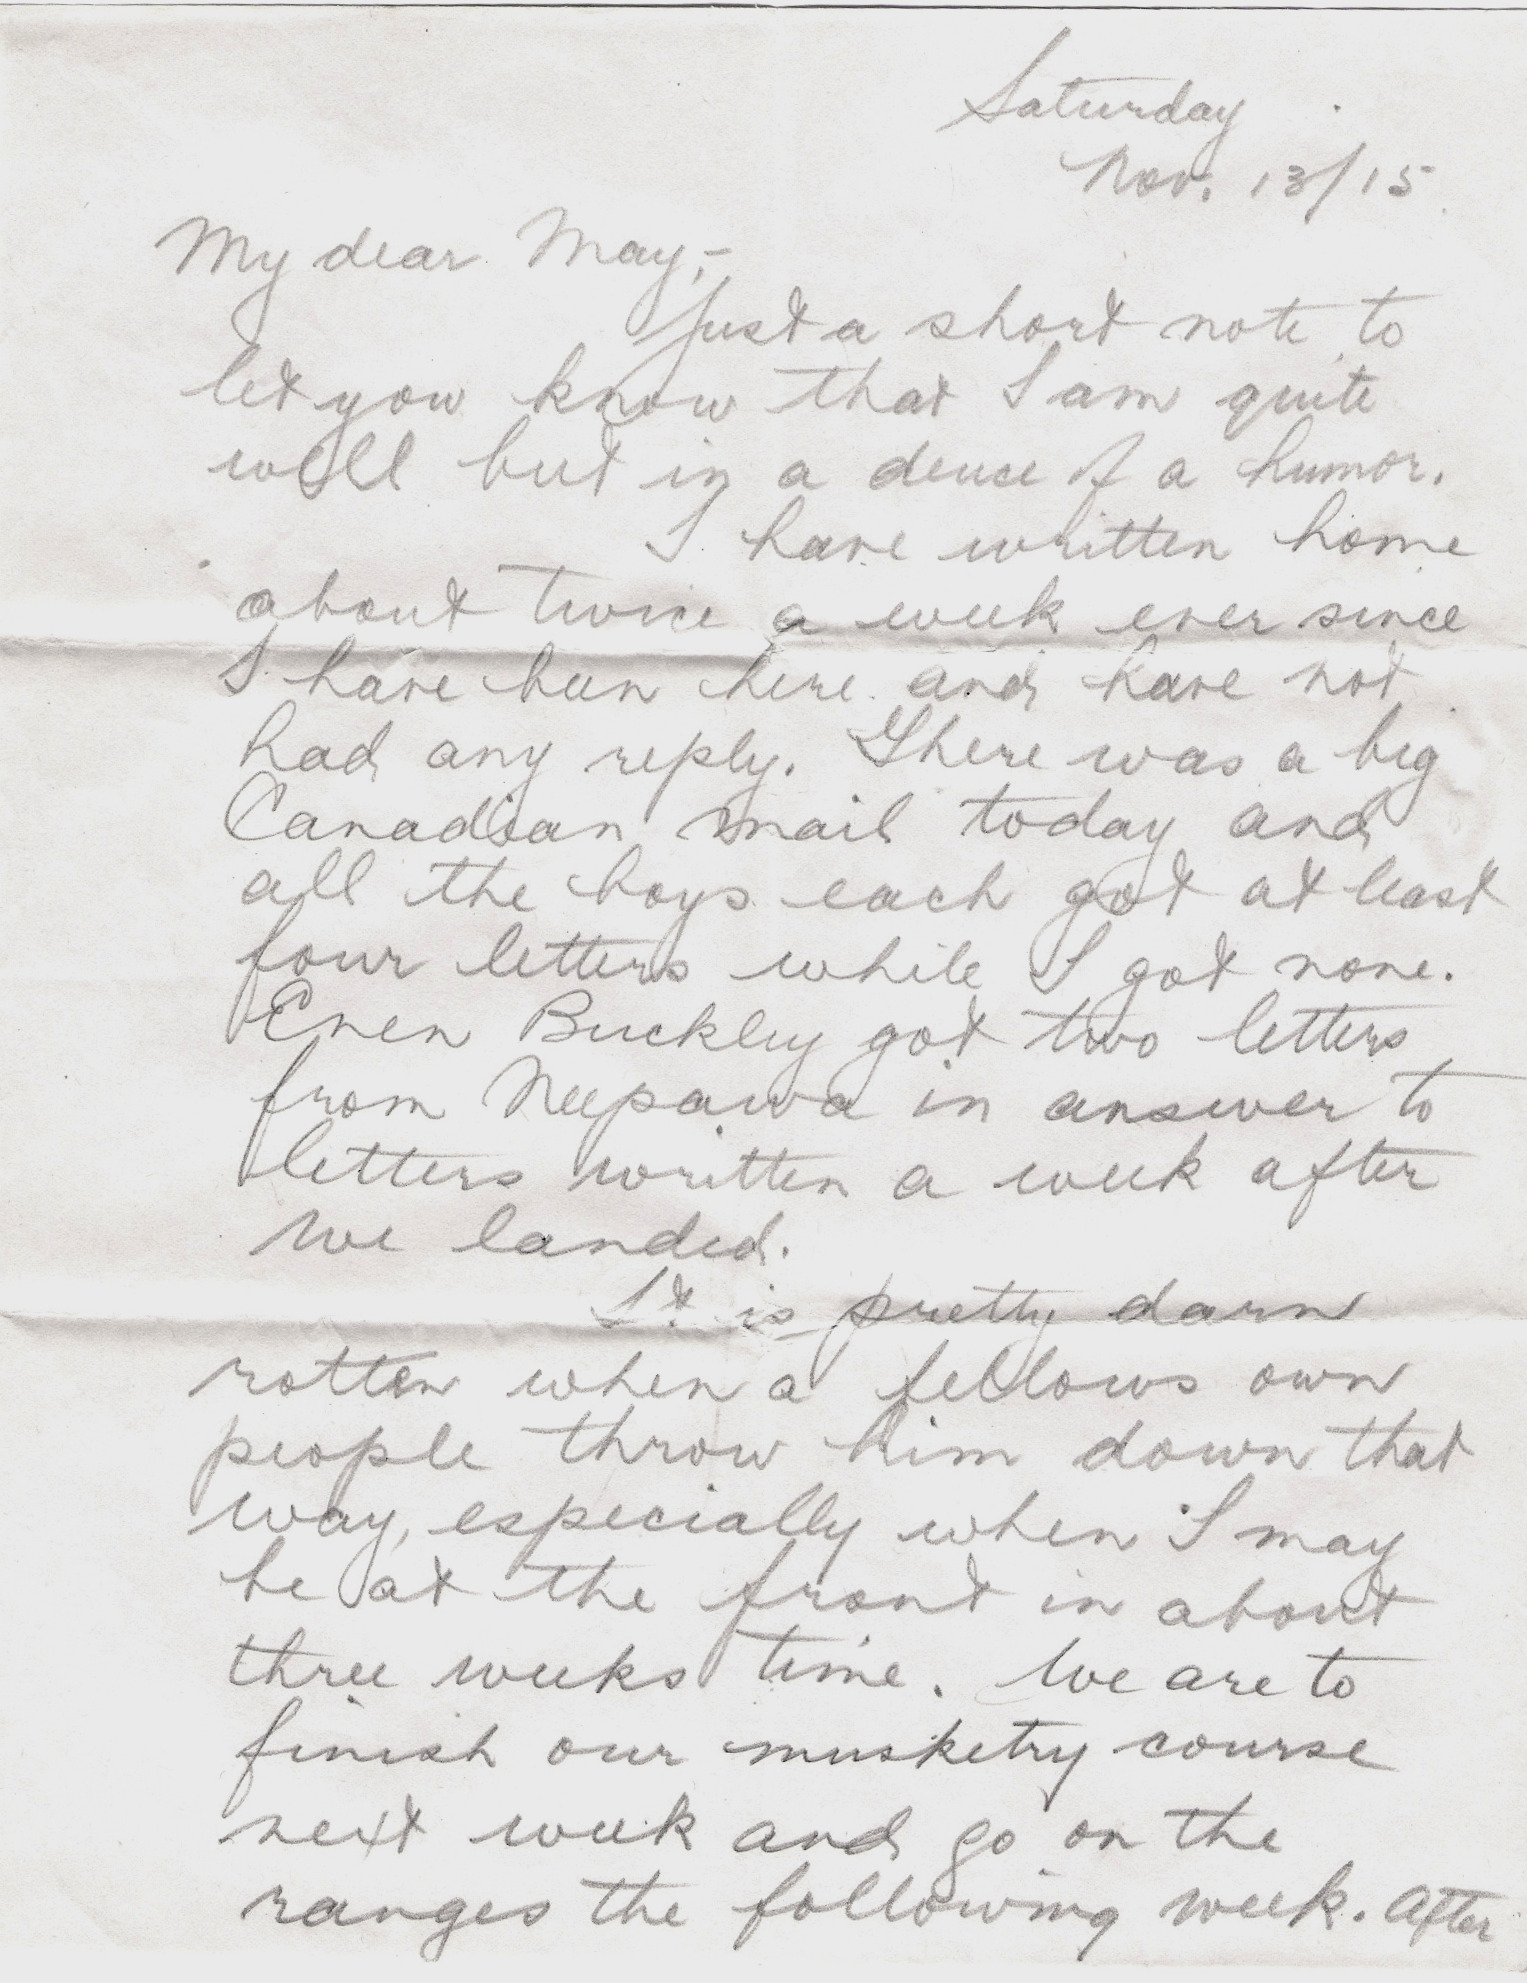 Saturday
Nov. 13/15
My dear May,-
Just a short note to
let you know that I am quite
well but in a deuce of a humor.
I have written home
about twice a week ever since
I have been here and have not
had any reply. There was a big
Canadian mail today and
all the boys each got at least
four letters while I got none.
Even Buckley got two letters
from Neepawa in answer to
letters written a week after
we landed.
It is pretty darn
rotten when a fellows own
people throw him down that
way, especially when I may
be at the front in about
three weeks time. We are to
finish our musketry course
next week and go on the
ranges the following week. After